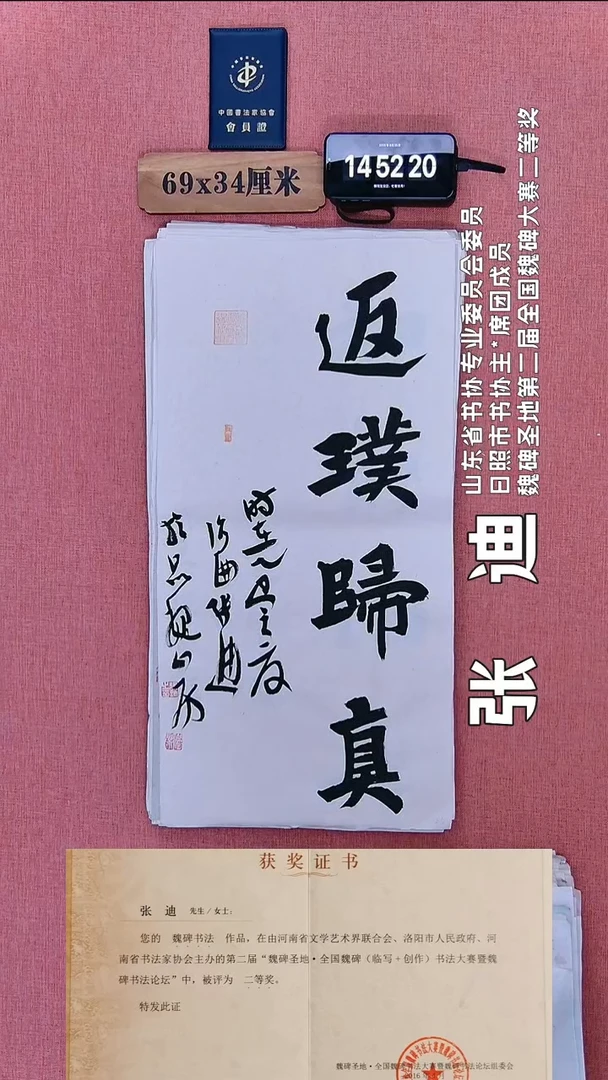 中國書法家協會
會員證
69x34厘米
14 52 20
返璞歸真
山东省书协专业委员会委员
日照市书协主*席团成员
魏碑圣地第二届全国魏碑大赛二等奖
张迪
获奖证书
张 迪 先生/女士:
您的 魏碑书法 作品,在由河南省文学艺术界联合会、洛阳市人民政府、河
南省书法家协会主办的第二届“魏碑圣地·全国魏碑(临写+创作)书法大赛暨魏
碑书法论坛”中,被评为 二等奖。
特发此证
魏碑圣地·全国魏碑书法大赛暨魏碑书法论坛组委会